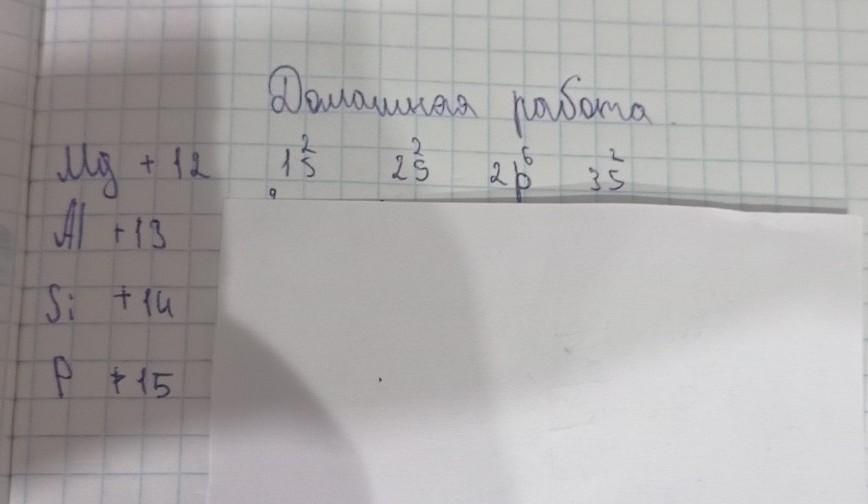 Домашная работа
Mg + 12 1s² 2s² 2p⁶ 3s²
Al + 13
Si + 14
P + 15